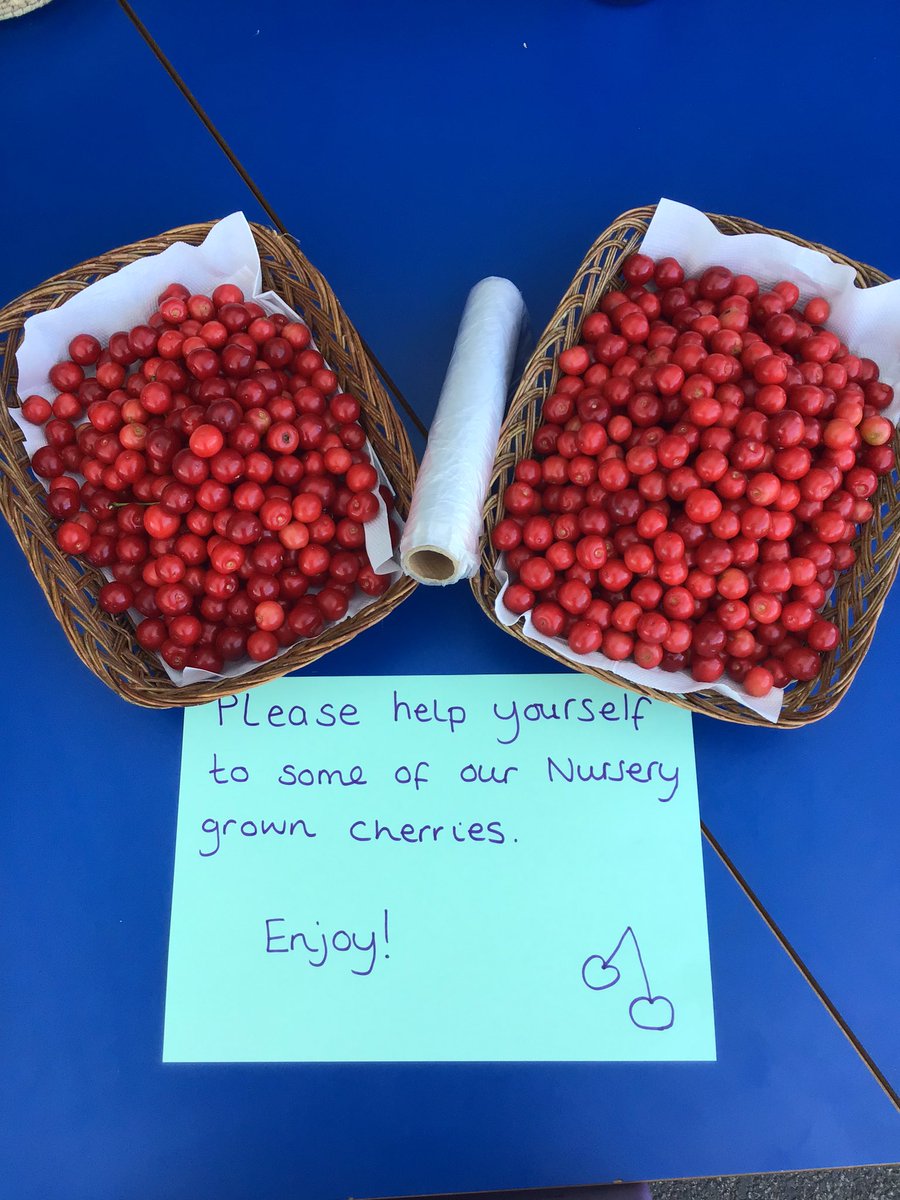 Please help yourself
to some of our Nursery
grown cherries.
Enjoy!